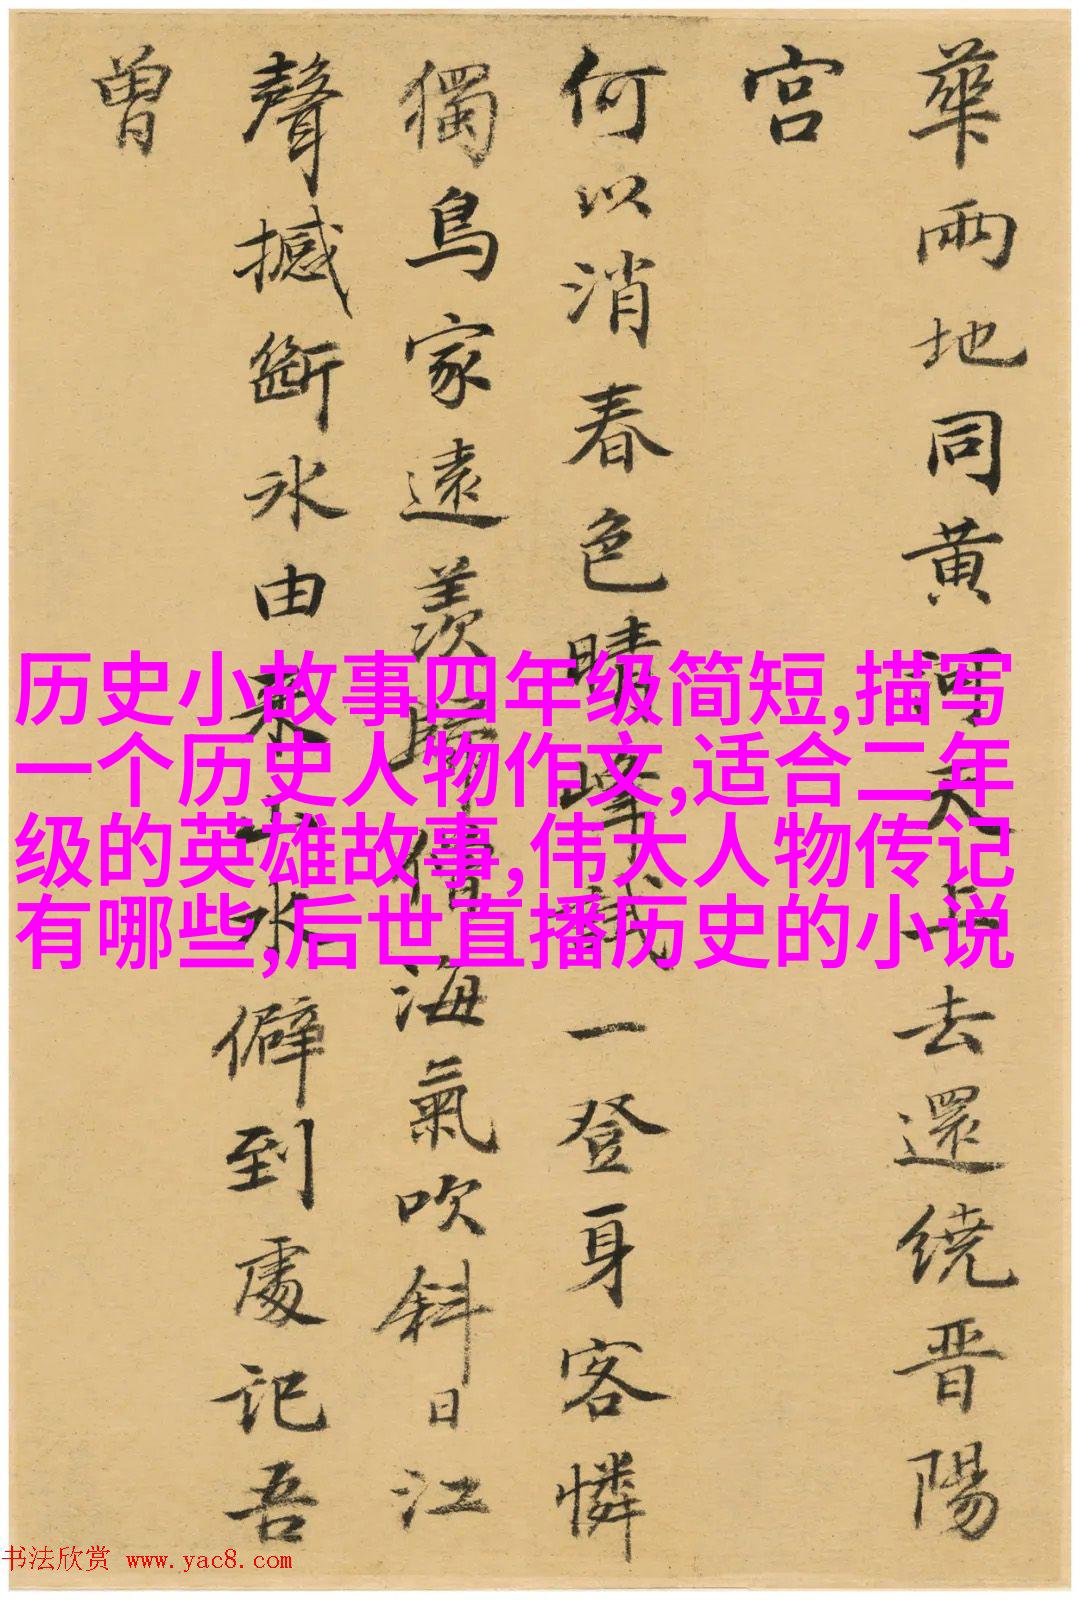 華兩地同黃河天上去還繞晉陽
宮
何以消春色晴峰試一登身客憐
獨鳥家遠羨歸僧海氣吹斜日江
聲撼斷氷由來山水僻到處記吾
曾
历史小故事四年级简短,描写
一个历史人物作文,适合二年
级的英雄故事,伟大人物传记
有哪些,后世直播历史的小说
书法欣赏 www.yac8.com